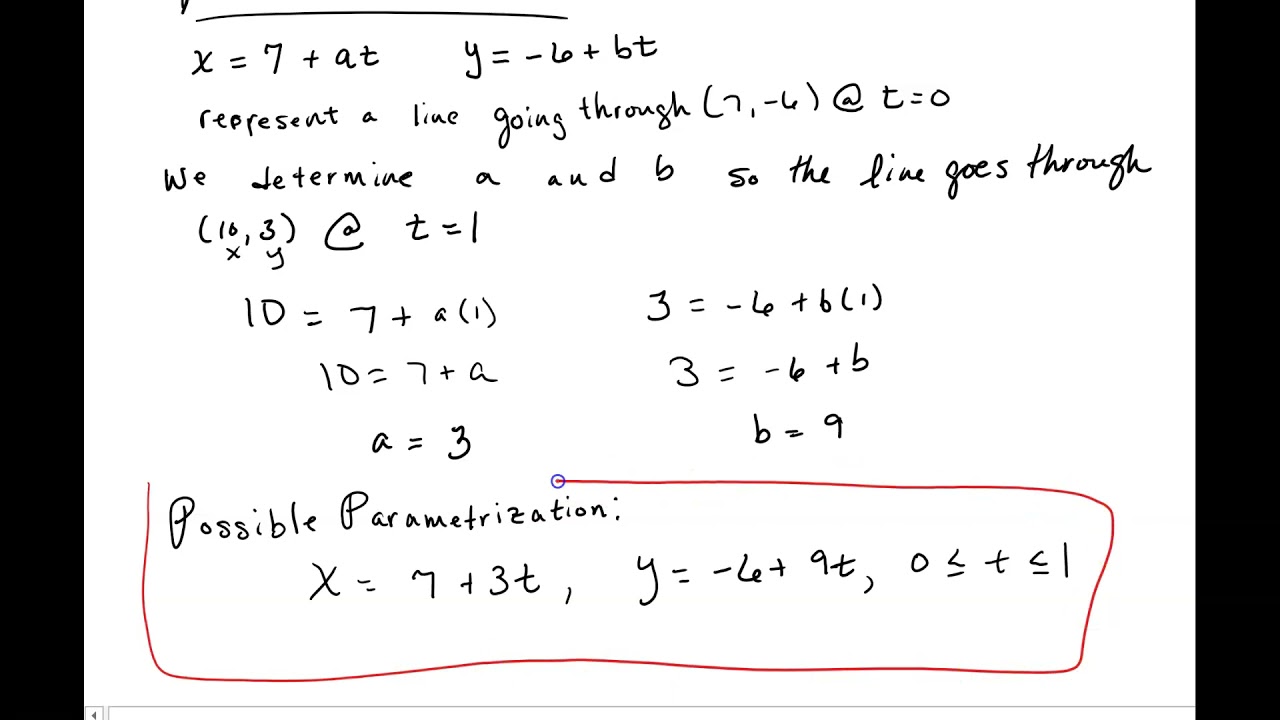 x = 7 + at y = -6 + bt
represent a line going through (7, -6) @ t=0
We determine a and b so the line goes through
(10, 3) @ t = 1
x y
10 = 7 + a(1) 3 = -6 + b(1)
10 = 7 + a 3 = -6 + b
a = 3 b = 9
Possible Parametrization:
x = 7 + 3t, y = -6 + 9t, 0 ≤ t ≤ 1